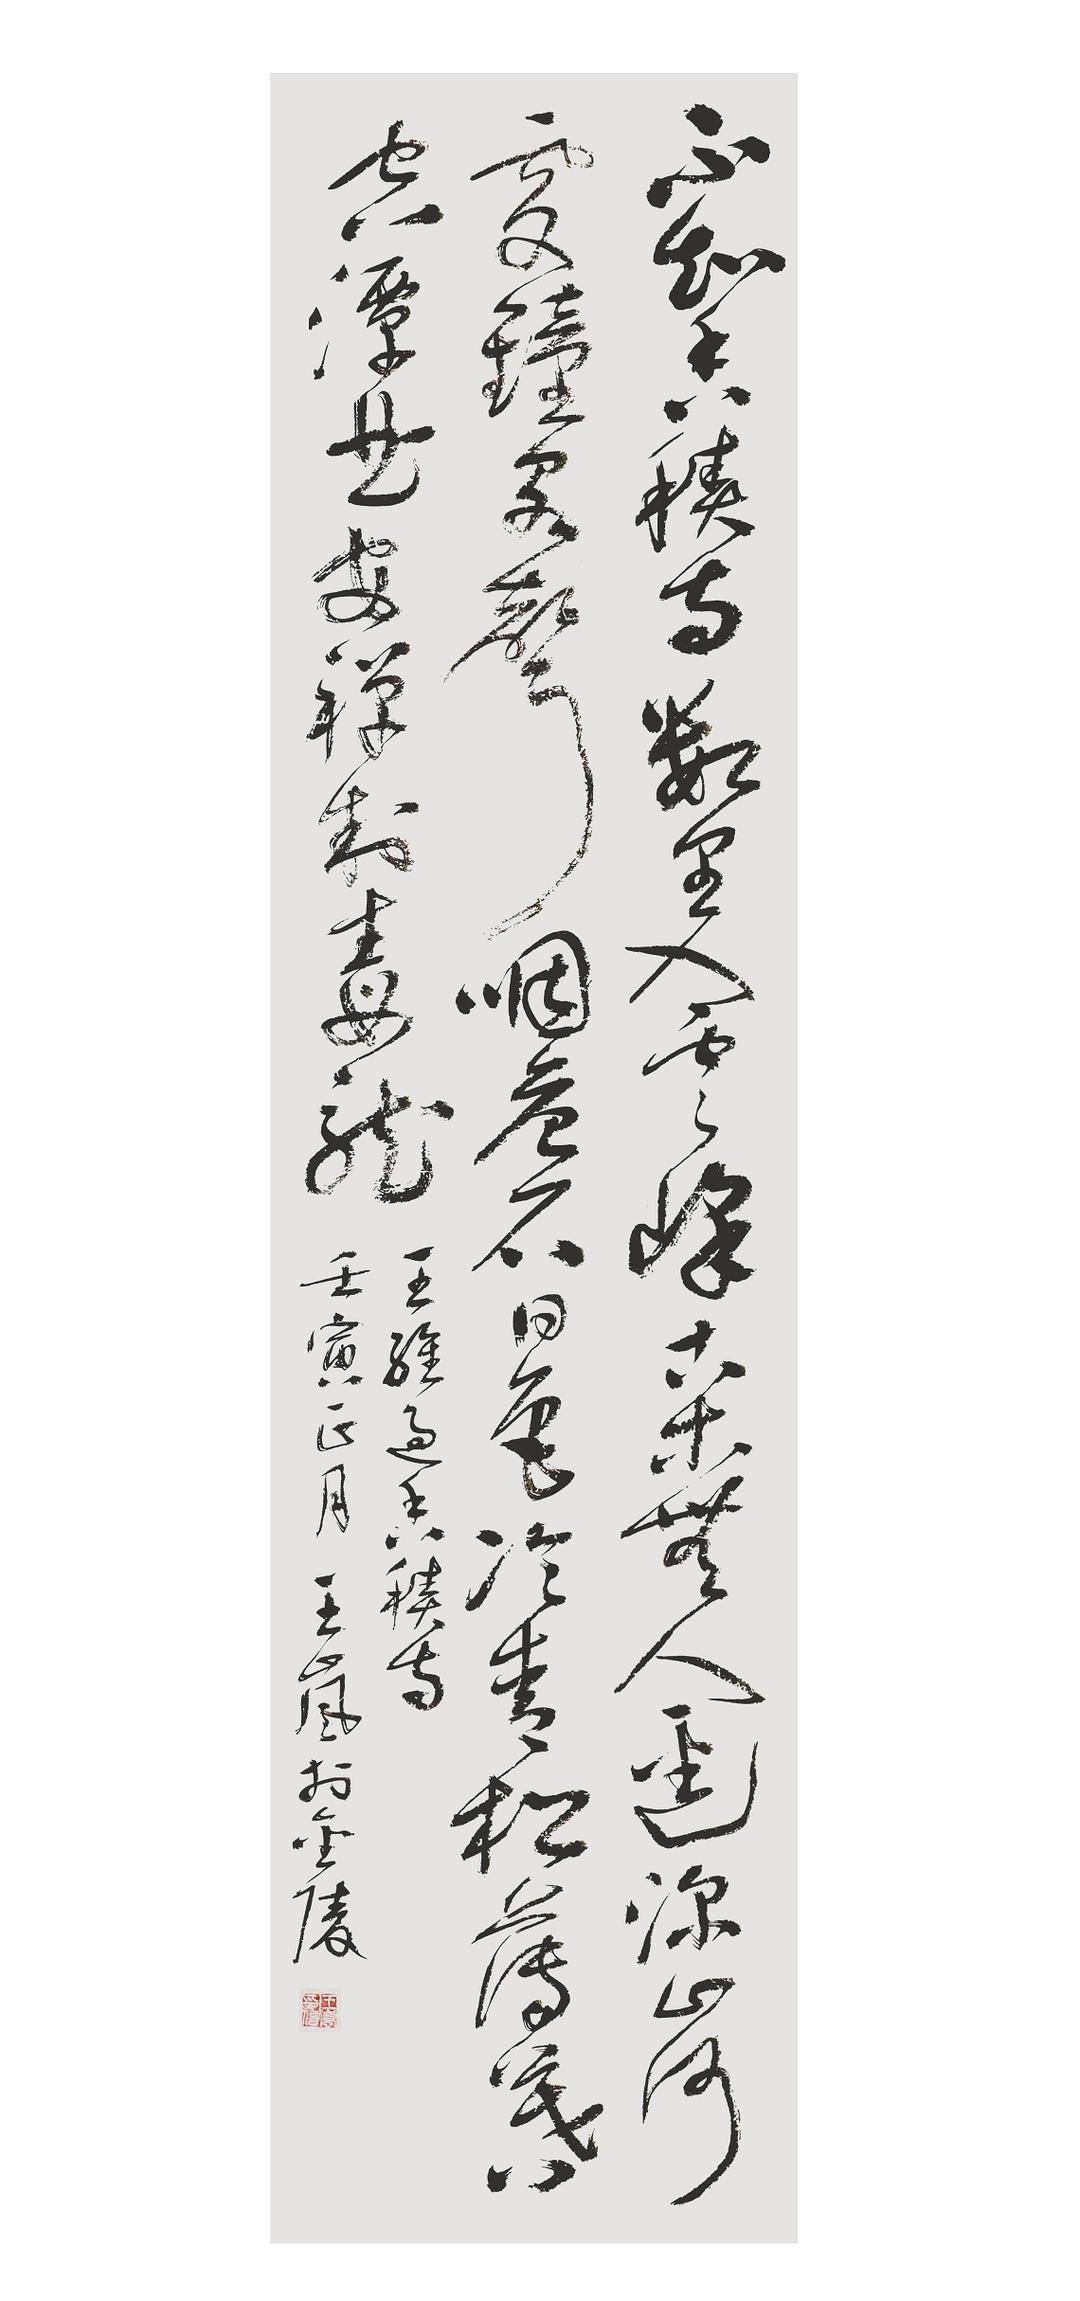 不知香積寺數里入雲峰古木無人逕深山何
處鐘泉聲咽危石日色冷青松薄暮
空潭曲安禪制毒龍
王維過香積寺
壬寅正月王嵐於金陵